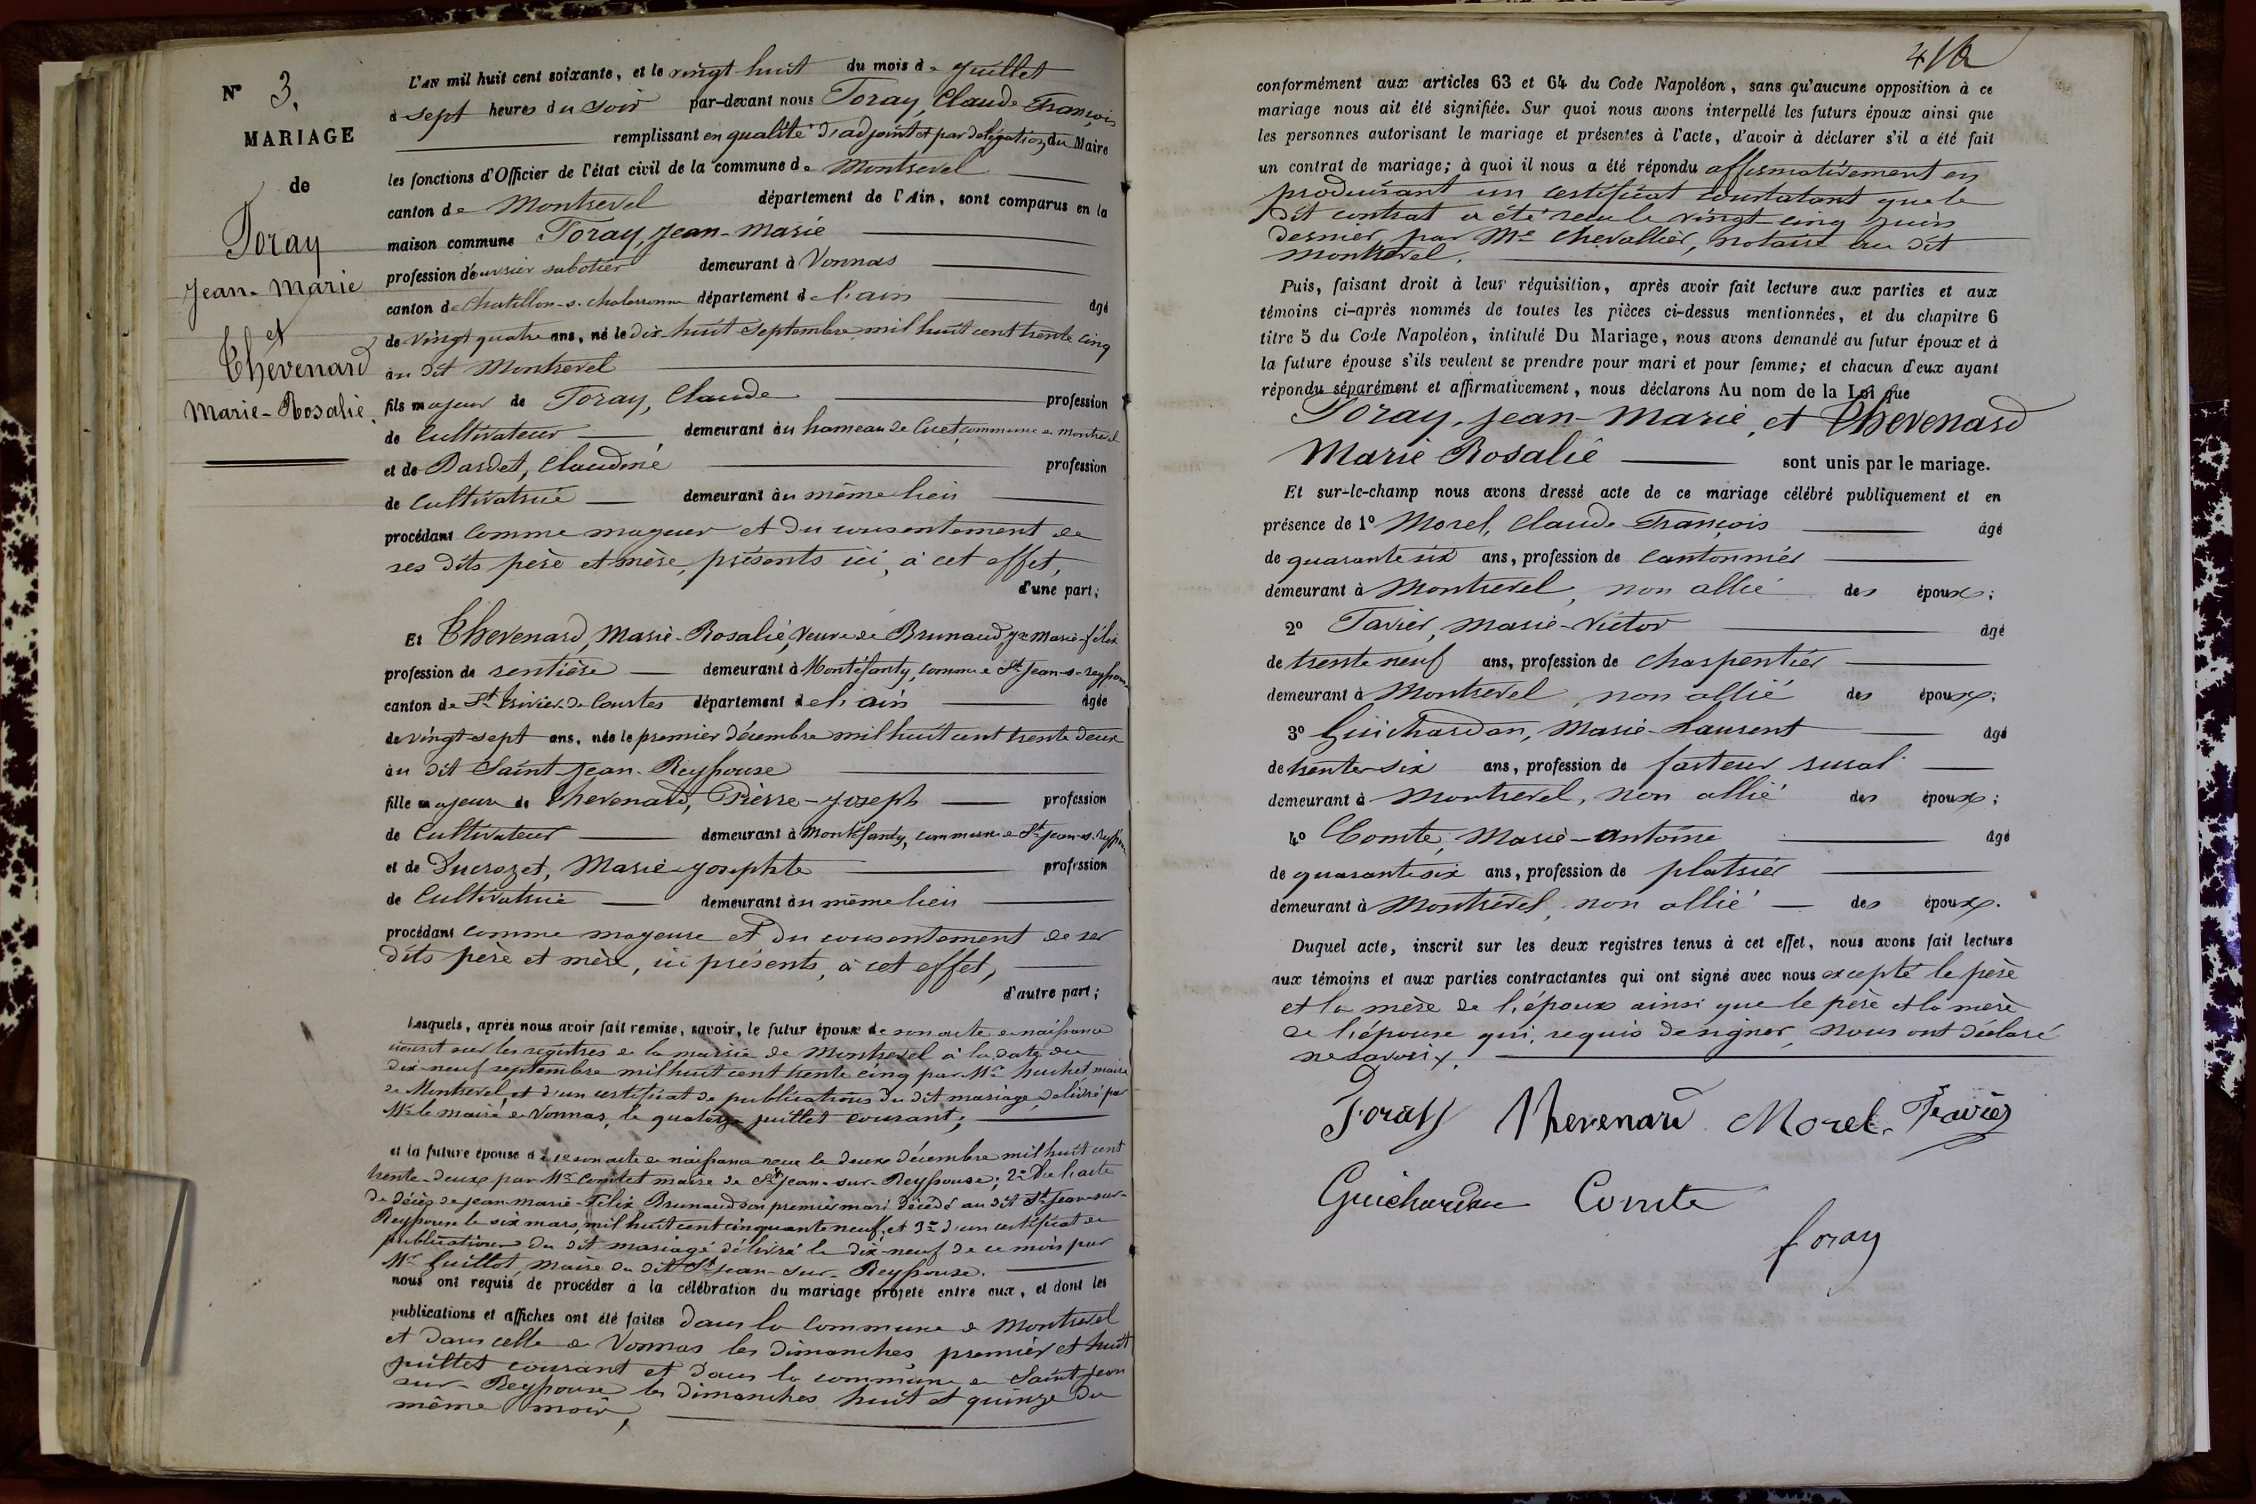 N° 3.
MARIAGE
de
Foray
Jean-Marie
et
Thévenard
Marie-Rosalie.
L'AN mil huit cent soixante, et le vingt huit du mois de Juillet
à sept heures du soir par-devant nous Foray, Claude François
remplissant en qualité d'adjoint et par délégation du Maire
les fonctions d'Officier de l'état civil de la commune de Montrevel
canton de Montrevel département de l'Ain, sont comparus en la
maison commune Foray, Jean-Marie
profession d'ouvrier sabotier demeurant à Vonnas
canton de Chatillon-s-Chalaronne département de l'ain âgé
de vingt quatre ans, né le dix-huit Septembre mil huit cent trente cinq
au dit Montrevel
fils majeur de Foray, Claude profession
de Cultivateur demeurant au hameau de Cuet, commune de Montrevel
et de Dardet, Claudine profession
de Cultivatrice demeurant au même lieu
procédant comme mageur et du consentement de
ses dits père et mère, présents ici, à cet effet,
d'une part;
Et Thevenard, Marie-Rosalie, veuve de Brunaud, Jn Marie-félix
profession de rentière demeurant à Montéfanty, commune St Jean-s-reyssouze
canton de St trivier-de Courtes département de l'ain âgée
de vingt-sept ans, née le premier décembre mil huit cent trente deux
au dit Saint-Jean-Reyssouze
fille majeure de Thevenard, Pierre-Joseph profession
de Cultivateur demeurant à Montéfanty, commune de St Jean-s-reyssouze
et de Ducrozet, Marie Josephte profession
de Cultivatrice demeurant au même lieu
procédant comme mageure et du consentement de ses
dits père et mère, ici présents, à cet effet,
d'autre part;
Lesquels, après nous avoir fait remise, savoir, le futur époux de son acte de naissance
inscrit sur les registres de la mairie de Montrevel à la date du
dix-neuf septembre mil huit cent trente cinq par Mr huchet maire
de Montrevel, et d'un certificat de publications du dit mariage, délivré par
Mr le maire de Vonnas, le quatorze juillet courant;
et la future épouse de 1° de son acte de naissance reçu le deux décembre mil huit cent
trente-deux par Mr Comtet maire de St Jean-sur-Reyssouze; 2° De l'acte
de décès de Jean-Marie-Félix Brunaud son premier mari décédé au dit St Jean-sur-
Reyssouze le six mars, mil huit cent cinquante neuf, et 3° d'un certificat de
publications du dit mariage délivré le dix-neuf de ce mois par
Mr Guillot, Maire du dit St Jean-sur-Reyssouze.
nous ont requis de procéder à la célébration du mariage projeté entre eux, et dont les
publications et affiches ont été faites dans la Commune de Montrevel
et dans celle de Vonnas les dimanches, premier et huit
juillet courant et dans la commune de Saint Jean
sur-Reyssouze les dimanches huit et quinze du
même mois,
conformément aux articles 63 et 64 du Code Napoléon, sans qu'aucune opposition à ce
mariage nous ait été signifiée. Sur quoi nous avons interpellé les futurs époux ainsi que
les personnes autorisant le mariage et présentes à l'acte, d'avoir à déclarer s'il a été fait
un contrat de mariage; à quoi il nous a été répondu affirmativement en
produisant un certificat constatant que le
dit contrat a été reçu le vingt-cinq juin
dernier, par Me Chevallier, notaire au dit
Montrevel.
Puis, faisant droit à leur réquisition, après avoir fait lecture aux parties et aux
témoins ci-après nommés de toutes les pièces ci-dessus mentionnées, et du chapitre 6
titre 5 du Code Napoléon, intitulé Du Mariage, nous avons demandé au futur époux et à
la future épouse s'ils veulent se prendre pour mari et pour femme; et chacun d'eux ayant
répondu séparément et affirmativement, nous déclarons Au nom de la Loi que
Foray, Jean-Marie, et Thevenard
Marie Rosalie sont unis par le mariage.
Et sur-le-champ nous avons dressé acte de ce mariage célébré publiquement et en
présence de 1° Morel, Claude-François âgé
de quarante six ans, profession de Cantonnier
demeurant à Montrevel, non allié des époux;
2° Favier, Marie-Victor âgé
de trente neuf ans, profession de Charpentier
demeurant à Montrevel, non allié des époux;
3° Guichardan, Marie-Laurent âgé
de trente-six ans, profession de facteur rural
demeurant à Montrevel, non allié des époux;
4° Comte, Marie-Antoine âgé
de quarante six ans, profession de platrier
demeurant à Montrevel, non allié des époux.
Duquel acte, inscrit sur les deux registres tenus à cet effet, nous avons fait lecture
aux témoins et aux parties contractantes qui ont signé avec nous excepté le père
et la mère de l'époux ainsi que le père et la mère
de l'épouse qui, requis de signer, nous ont déclaré
ne savoir.
Foray Thevenard Morel. Favier
Guichardan Comte
foray